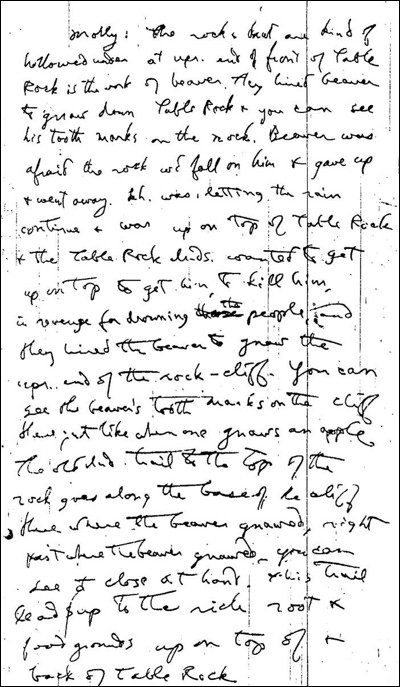 Molly: The rocks that are kind of
hollowed under at upr. end of front of Table
Rock is the work of beaver. They hired beaver
to gnaw down Table Rock & you can see
his tooth marks on the rock. Beaver was
afraid the rock wd fall on him & gave up
& went away. was letting the rain
continue & was up on top of Table Rock
& the Table Rock Inds. wanted to get
up on top to get him to kill him,
in revenge for drowning the people, and
they hired the beaver to gnaw the
upr. end of the rock-cliff. You can
see the beaver's tooth marks on the cliff
there, just like when one gnaws an apple
The old Ind. trail to the top of the
rock goes along the base of the cliff
there where the beaver gnawed, right
past where the beaver gnawed, you can
see it close at hand, & this trail
leads up to the rich root &
food grounds up on top of &
back of Table Rock